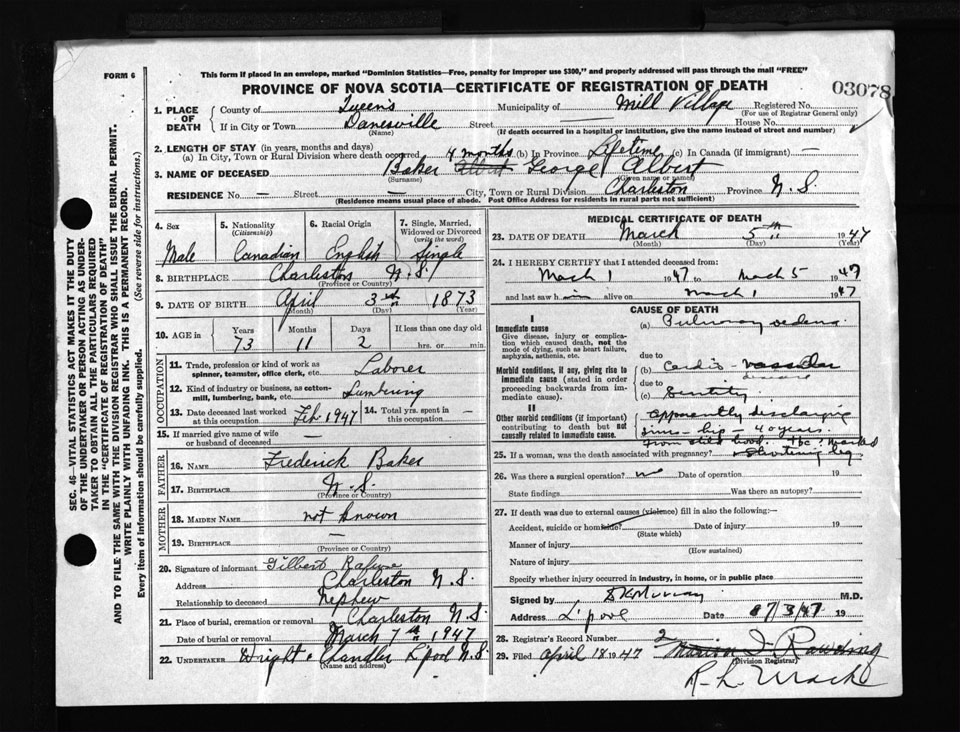 FORM 6
This form if placed in an envelope, marked "Dominion Statistics—Free, penalty for improper use $300," and properly addressed will pass through the mail "FREE"
PROVINCE OF NOVA SCOTIA—CERTIFICATE OF REGISTRATION OF DEATH
03078
1. PLACE OF DEATH
County of Queens Municipality of Mill Village Registered No.
(For use of Registrar General only)
If in City or Town Danesville Street House No.
(Name) (If death occurred in a hospital or institution, give the name instead of street and number)
2. LENGTH OF STAY (in years, months and days)
(a) In City, Town or Rural Division where death occurred 4 months (b) In Province Lifetime (c) In Canada (if immigrant) —
3. NAME OF DECEASED Baker Albert George Albert
(Surname) (Given name or names)
RESIDENCE No. — Street — City, Town or Rural Division Charleston Province N.S.
(Residence means usual place of abode. Post Office Address for residents in rural parts not sufficient)
4. Sex Male
5. Nationality (Citizenship) Canadian
6. Racial Origin English
7. Single, Married, Widowed or Divorced (write the word) Single
8. BIRTHPLACE Charleston N.S.
(Province or Country)
9. DATE OF BIRTH April 3th 1873
(Month) (Day) (Year)
10. AGE in Years Months Days If less than one day old
73 11 2 hrs. or min.
OCCUPATION
11. Trade, profession or kind of work as spinner, teamster, office clerk, etc. Laborer
12. Kind of industry or business, as cotton-mill, lumbering, bank, etc. Lumbering
13. Date deceased last worked at this occupation Feb 1947
14. Total yrs. spent in this occupation —
15. If married give name of wife or husband of deceased —
FATHER
16. NAME Frederick Baker
17. BIRTHPLACE N.S.
(Province or Country)
MOTHER
18. MAIDEN NAME not known
19. BIRTHPLACE —
(Province or Country)
20. Signature of informant Gilbert Rafuse
Address Charleston N.S.
Relationship to deceased Nephew
21. Place of burial, cremation or removal Charleston N.S.
Date of burial or removal March 7th 1947
22. UNDERTAKER Wright & Chandler L'pool N.S
MEDICAL CERTIFICATE OF DEATH
23. DATE OF DEATH March 5th 1947
(Month) (Day) (Year)
24. I HEREBY CERTIFY that I attended deceased from:
March 1 1947 to March 5 1947
and last saw him alive on March 1 1947
CAUSE OF DEATH
I
Immediate cause
Give disease, injury or complication which caused death, not the mode of dying, such as heart failure, asphyxia, asthenia, etc.
(a) Pulmonary oedema
due to
Morbid conditions, if any, giving rise to immediate cause (stated in order proceeding backwards from immediate cause).
(b) Cardio-vascular disease
due to
(c) Senility
II
Other morbid conditions (if important) contributing to death but not causally related to immediate cause.
apparently discharging
sinus - hip - 40 years.
from child hood. Tbc? Marked
shortening leg
25. If a woman, was the death associated with pregnancy?
26. Was there a surgical operation? no Date of operation 19
State findings Was there an autopsy?
27. If death was due to external causes (violence) fill in also the following:—
Accident, suicide or homicide? Date of injury 19
(State which)
Manner of injury
(How sustained)
Nature of injury
Specify whether injury occurred in industry, in home, or in public place
Signed by Murray M.D.
Address L'pool Date 7/3/47 19
28. Registrar's Record Number 2
29. Filed April 18 1947 Marion I. Rawding
(Division Registrar)
SEC. 46—VITAL STATISTICS ACT MAKES IT THE DUTY
OF THE UNDERTAKER OR PERSON ACTING AS UNDERTAKER TO OBTAIN ALL THE PARTICULARS REQUIRED
IN THE "CERTIFICATE OF REGISTRATION OF DEATH"
AND TO FILE THE SAME WITH THE DIVISION REGISTRAR WHO SHALL ISSUE THE BURIAL PERMIT.
WRITE PLAINLY WITH UNFADING INK. THIS IS A PERMANENT RECORD.
Every item of information should be carefully supplied. (See reverse side for instructions.)